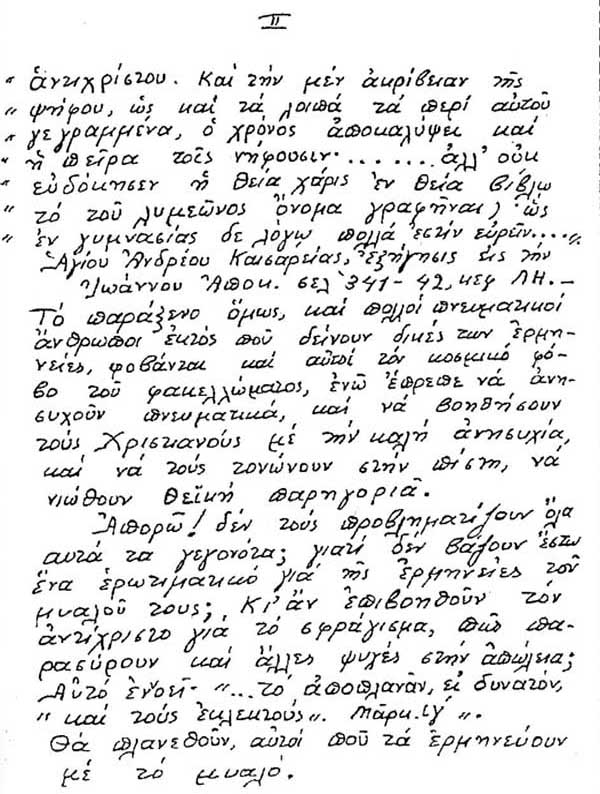 II
„ ἀντιχρίστου. Καί τήν μέν ἀκρίβειαν τῆς
„ ψήφου, ὡς καί τά λοιπά τά περί αὐτοῦ
„ γεγραμμένα, ὁ χρόνος ἀποκαλύψει καί
„ ἡ πεῖρα τοῖς νήφουσιν........ἀλλ' οὐκ
„ εὐδόκησεν ἡ θεία χάρις ἐν θεία βίβλω
„ τό τοῦ λυμεῶνος ὄνομα γραφῆναι, ὡς
„ ἐν γυμνασίας δε λόγω πολλά ἐστίν εὑρεῖν....„.
Ἁγίου Ἀνδρέου Καισαρείας, ἐξήγησις εἰς τήν
Ἰωάννου Ἀποκ. σελ 341-42, κεφ ΛΗ.—
Τό παράξενο ὅμως, καί πολλοί πνευματικοί
ἄνθρωποι ἐκτός πού δείνουν δικές των ἑρμη-
νείες, φοβάνται καί αὐτοί τόν κοσμικό φό-
βο τοῦ φακελλώματος, ἐνῶ ἔπρεπε νά ἀνη-
συχοῦν πνευματικά, καί νά βοηθήσουν
τούς Χριστιανούς μέ τήν καλή ἀνησυχία,
καί νά τούς τονώνουν στήν πίστη, νά
νιώθουν θεϊκή παρηγοριά.
Ἀπορῶ! δέν τούς προβληματίζουν ὅλα
αυτά τα γεγονότα; γιατί δέν βάζουν ἔστω
ἕνα ἐρωτιματικό γιά τῆς ἑρμηνείες τοῦ
μυαλοῦ τους; Κι' ἄν ἐπιβοηθοῦν τόν
ἀντίχριστο γιά τό σφράγισμα, πῶς πα-
ρασύρουν καί ἄλλες ψυχές στήν ἀπώλεια;
Αὐτό ἐνοεῖ· "...τό ἀποπλανᾶν, εἰ δυνατόν,
„ καί τούς ἐκλεκτούς„. Μᾶρκ. ιγ´ „.
Θά πλανεθοῦν, αὐτοί πού τά ἑρμηνεύουν
μέ τό μυαλό.